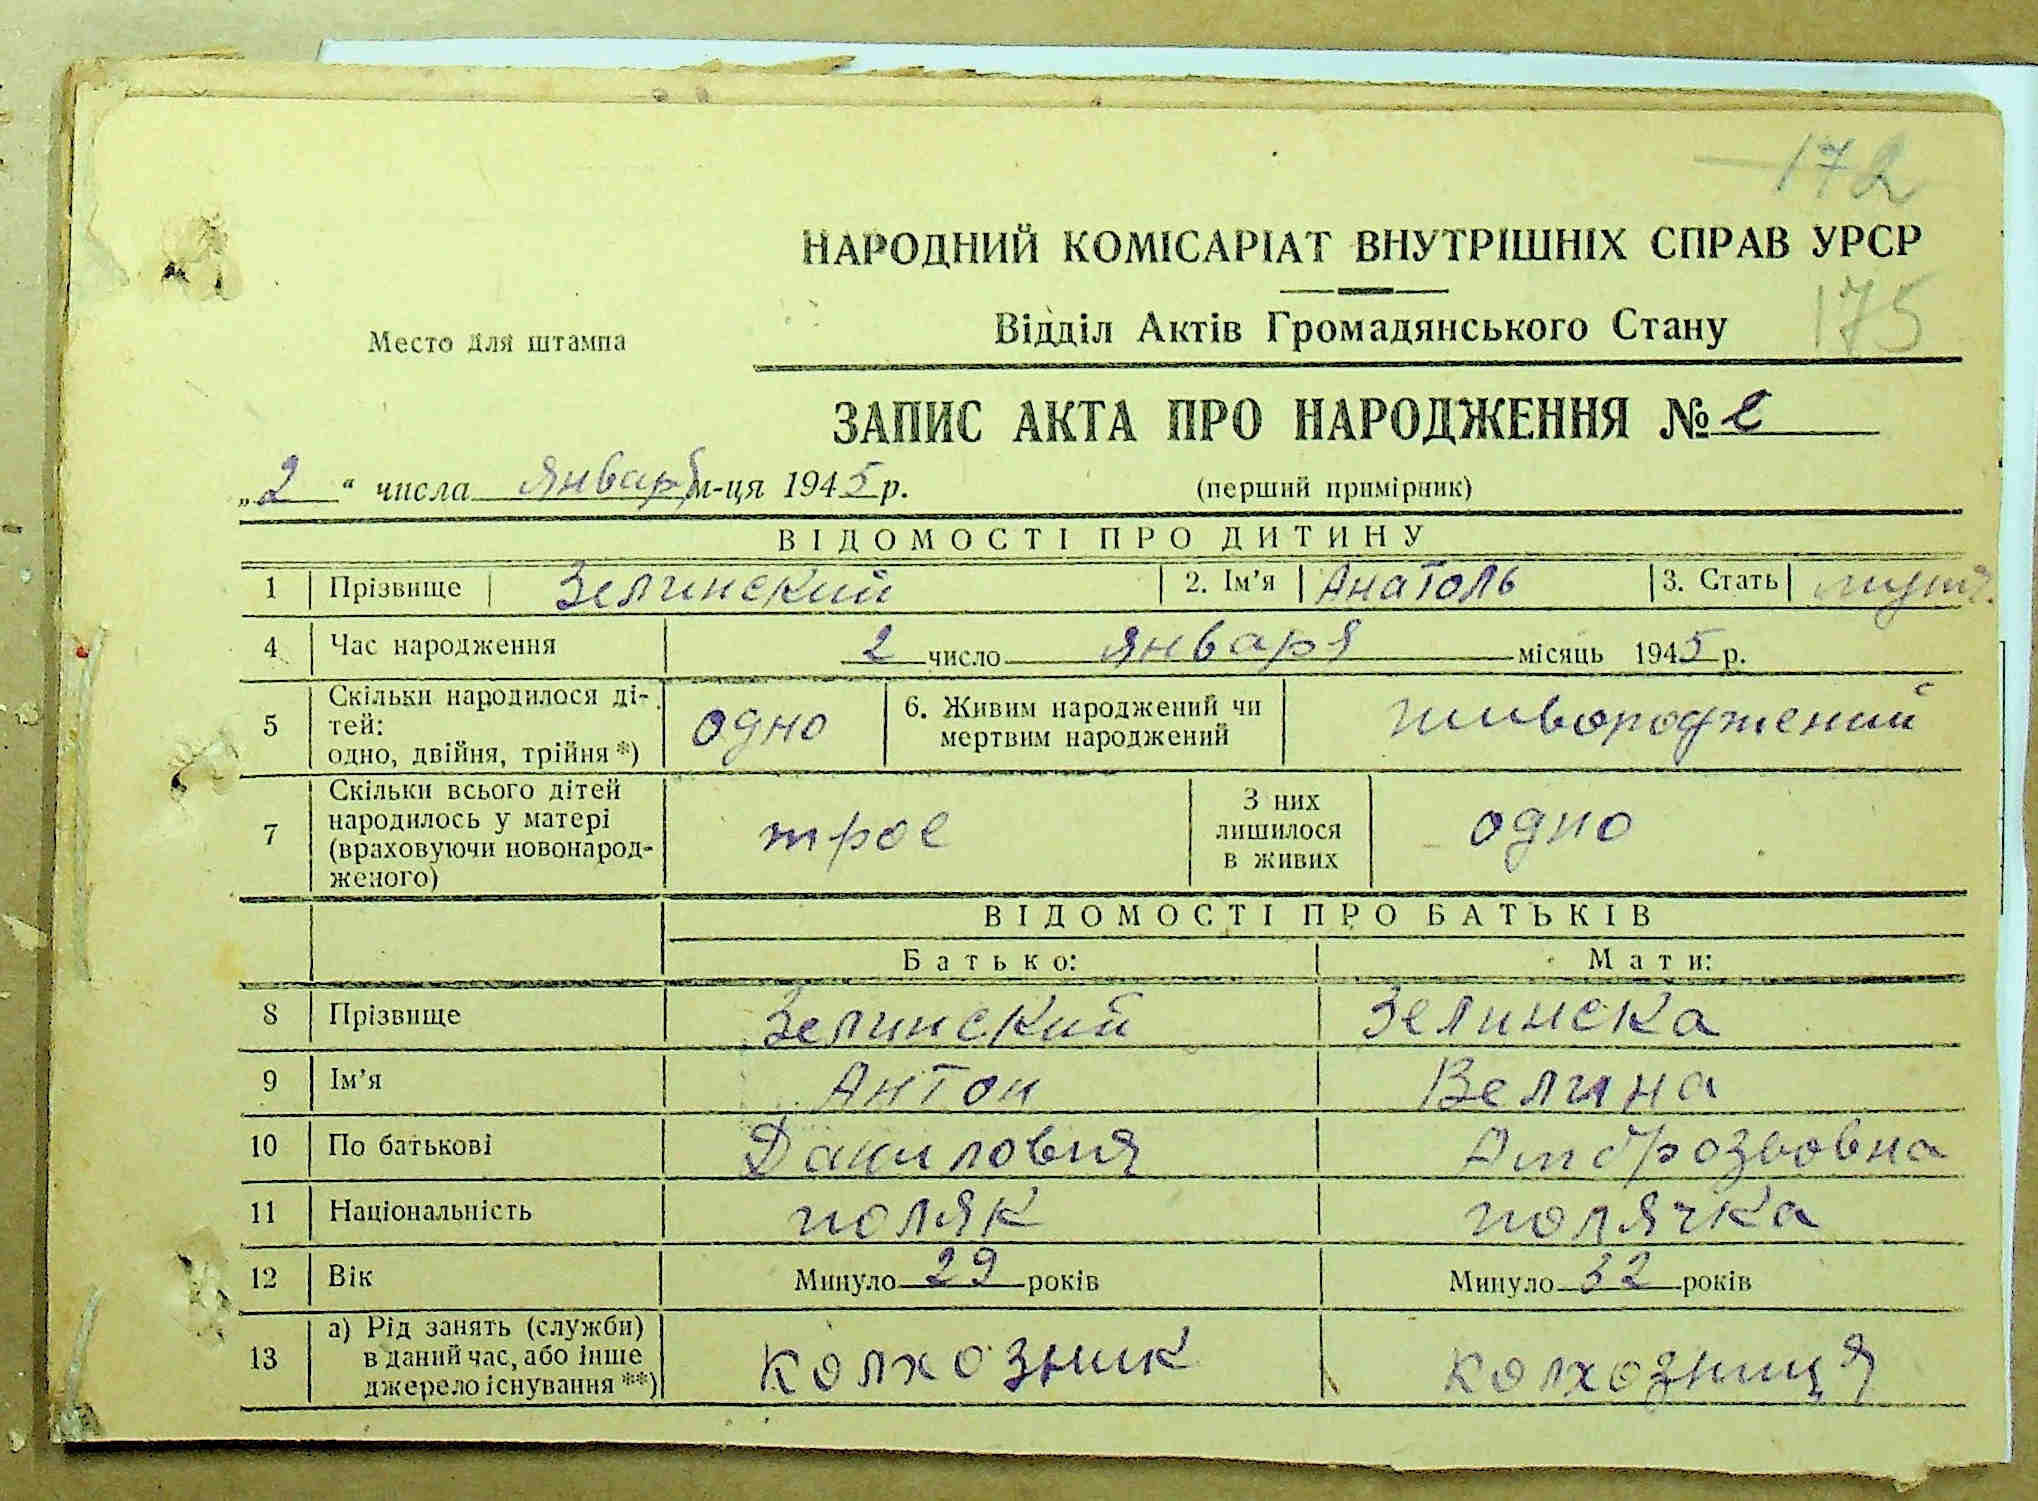 172
НАРОДНИЙ КОМІСАРІАТ ВНУТРІШНІХ СПРАВ УРСР
175
Место для штампа
Відділ Актів Громадянського Стану
ЗАПИС АКТА ПРО НАРОДЖЕННЯ № 2
„2“ числа января м-ця 1945 р. (перший примірник)
ВІДОМОСТІ ПРО ДИТИНУ
1 Прізвище Зелинский 2. Ім’я Анатоль 3. Стать
4 Час народження 2 число января місяць 1945 р.
5 Скільки народилося ді-
тей:
одно, двійня, трійня *) одно 6. Живим народжений чи
мертвим народжений живороджений
7 Скільки всього дітей
народилось у матері
(враховуючи новонарод-
женого) трое З них
лишилося
в живих одно
ВІДОМОСТІ ПРО БАТЬКІВ
Батько: Мати:
8 Прізвище Зелинский Зелинска
9 Ім’я Антон Велина
10 По батькові Данилович Амброзьовна
11 Національність поляк полячка
12 Вік Минуло 29 років Минуло 32 років
13 а) Рід занять (служби)
в даний час, або інше
джерело існування **) колхозник колхозниця